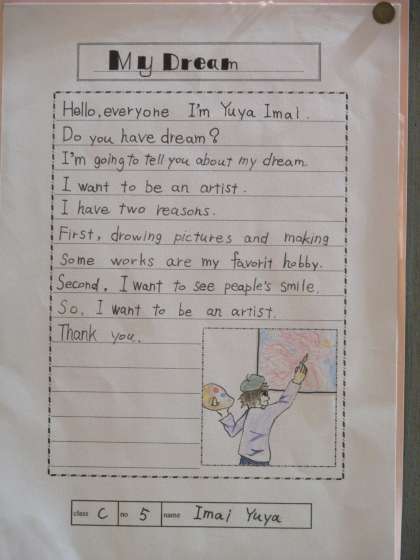 My Dream
Hello, everyone I'm Yuya Imai.
Do you have dream?
I'm going to tell you about my dream.
I want to be an artist.
I have two reasons.
First, drowing pictures and making
some works are my favorit hobby.
Second, I want to see peaple's smile.
So, I want to be an artist.
Thank you.
class C no 5 name Imai Yuya